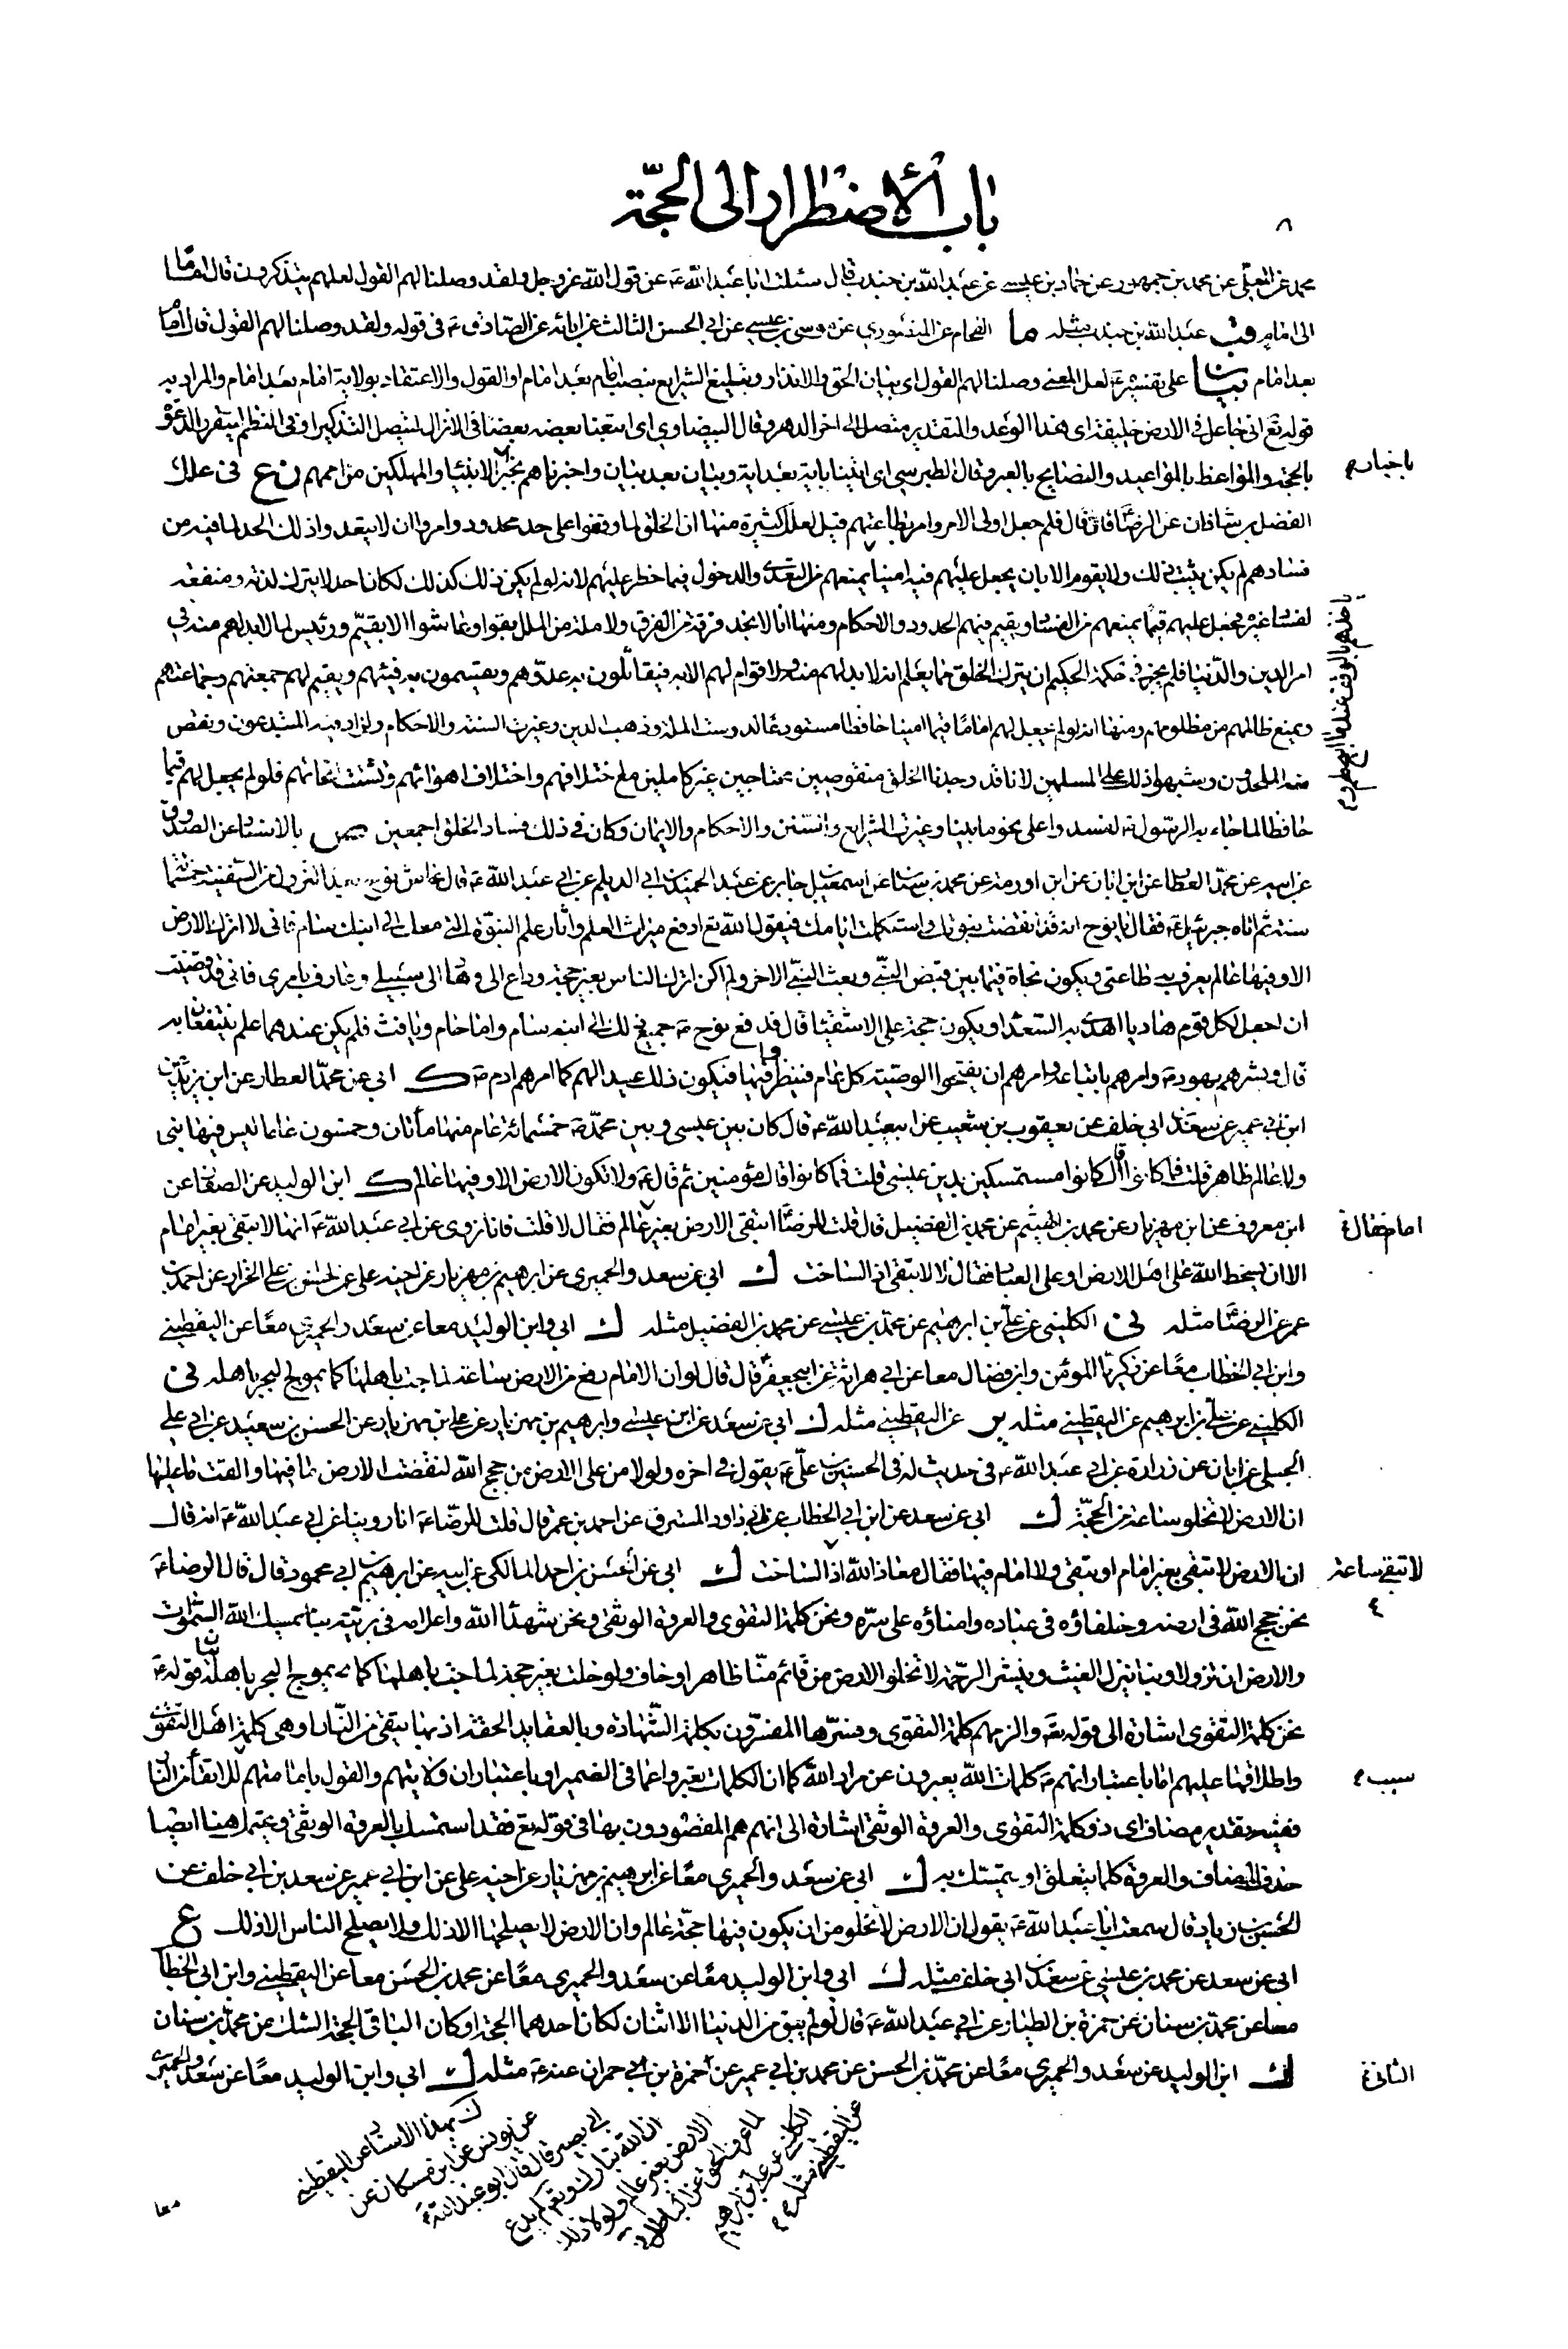 باب الاضطرار الى الحجّة
٨
محمد عن المعلّى عن محمد بن جمهور عن حماد بن عيسى عن عبد الله بن جندب قال سئلت ابا عبد الله ع عن قول الله عز وجل ولقد وصلنا لهم القول لعلهم يتذكرون قال امام
الى امام عبد الله بن جندب مثله ما الفحام عن المنصوري عن موسى بن عيسى عن ابي الحسن الثالث عن ابائه عن الصادق ع في قوله ولقد وصلنا لهم القول قال امام
بعد امام بيان على تفسيره ع لعل المعنى وصلنا لهم القول اى بيان الحق والانذار وتبليغ الشرايع بنصب امام بعد امام او القول والاعتقاد بولاية امام بعد امام والمراد به
قوله تع انى جاعل في الارض خليفة اى هذا الوعد والتقدير متصل الى اخر الدهر وقال البيضاوي اى اتبعنا بعضه بعضا في الانزال ليتصل التذكير او في النظم ليتقرر الدعوة
بالحجة والمواعظ بالمواعيد والنصايح بالعبر وقال الطبرسي اى اتينا باية بعد اية وبيان بعد بيان واخبرناهم بخبر الانبياء والمهلكين من اممهم ن ع في علل
باخبار
الفضل بن شاذان عن الرضا ع فان قال فلم جعل اولى الامر وامر بطاعتهم قيل لعلل كثيرة منها ان الخلق لما وقفوا على حد محدود وامروا ان لا يتعدوا ذلك الحد لما فيه من
فسادهم لم يكن يثبت ذلك ولا يقوم الا بان يجعل عليهم فيه امينا يمنعهم من التعدى والدخول فيما حظر عليهم لانه لو لم يكن ذلك كذلك لكان احد لا يترك لذته ومنفعته
لفساد غيره فجعل عليهم قيما يمنعهم من الفساد ويقيم فيهم الحدود والاحكام ومنها انا لا نجد فرقة من الفرق ولا ملة من الملل بقوا وعاشوا الا بقيّم ورئيس لما لا بد لهم منه في
امر الدين والدنيا فلم يجز في حكمة الحكيم ان يترك الخلق مما يعلم انه لا بد لهم منه ولا قوام لهم الا به فيقاتلون به عدوهم ويقسمون به فيئهم ويقيم لهم جمعتهم وجماعتهم
ويمنع ظالمهم من مظلومهم ومنها انه لو لم يجعل لهم اماما قيما امينا حافظا مستودعا لدرست الملة وذهب الدين وغيرت السنة والاحكام ولزاد فيه المبتدعون ونقص
منه الملحدون وشبهوا ذلك على المسلمين لانا قد وجدنا الخلق منقوصين محتاجين غير كاملين مع اختلافهم واختلاف اهوائهم وتشتت انحائهم فلو لم يجعل لهم قيما
حافظا لما جاء به الرسول ص لفسدوا على نحو ما بينا وغيرت الشرايع والسنن والاحكام والايمان وكان في ذلك فساد الخلق اجمعين ص بالاسناد عن الصدوق
عن ابيه عن محمد العطار عن ابن ابان عن ابن اورمة عن محمد بن سنان عن اسمعيل بن جابر عن عبد الحميد بن ابي الديلم عن ابي عبد الله ع قال عاش نوح بعد النزول من السفينة خمسمائة
سنة ثم اتاه جبرئيل ع فقال يا نوح انه قد انقضت نبوتك واستكملت ايامك فيقول الله تع ادفع ميراث العلم واثار علم النبوة التي معك الى ابنك سام فانى لا اترك الارض
الا وفيها عالم يعرف به طاعتى ويكون نجاة فيما بين قبض النبي وبعث النبي الاخر ولم اكن اترك الناس بغير حجة وداع الى وهاد الى سبيلى وعارف بامرى فانى قد قضيت
ان اجعل لكل قوم هاديا اهدى به السعداء ويكون حجة على الاشقيا قال فدفع نوح ع جميع ذلك الى ابنه سام واما حام ويافث فلم يكن عندهما علم ينتفعان به
قال وبشرهم بهود ع وامرهم باتباعه وامرهم ان يفتحوا الوصية كل عام فينظروا فيها فيكون ذلك عيدا لهم كما امرهم ادم ع ك ابى عن محمد العطار عن ابن يزيد عن
ابن ابى عمير عن سعد بن ابى خلف عن يعقوب بن شعيب عن ابى عبد الله ع قال كان بين عيسى وبين محمد ص خمسمائة عام منها مأتان وخمسون عاما ليس فيها نبى
ولا عالم ظاهر قلت فما كانوا قال كانوا مستمسكين بدين عيسى قلت فما كانوا قال مؤمنين ثم قال ع ولا تكون الارض الا وفيها عالم ك ابن الوليد عن الصفار عن
ابن معروف عن ابن مهزيار عن محمد بن الهيثم عن محمد بن الفضيل قال قلت للرضا ع اتبقى الارض بغير عالم فقال لا قلت فانا نروى عن ابي عبد الله ع انها لا تبقى بغير امام
امام فقال
الا ان يسخط الله على اهل الارض او على العباد فقال لا لا تبقى اذا لساخت ك ابى عن سعد والحميرى عن ابرهيم بن مهزيار عن اخيه على عن الحسن بن على الخزاز عن احمد بن
عمر عن الرضا ع مثله نى الكلينى عن على بن ابرهيم عن محمد بن عيسى عن محمد بن الفضيل مثله ك ابى وابن الوليد معا عن سعد والحميرى معا عن اليقطينى
وابن ابي الخطاب معا عن زكريا المؤمن وابن فضال معا عن ابى هراسة عن ابى جعفر ع قال قال لو ان الامام رفع من الارض ساعة لماجت باهلها كما يموج البحر باهله نى
الكلينى عن على بن ابرهيم عن اليقطينى مثله ير عن اليقطينى مثله ك ابى عن سعد عن ابن عيسى وابرهيم بن مهزيار عن على بن مهزيار عن الحسن بن سعيد عن ابى على
البجلى عن ابان عن زرارة عن ابي عبد الله ع في حديث له في الحسين بن على ع يقول في اخره ولولا من على الارض من حجج الله لنفضت الارض ما فيها والقت ما عليها
ان الارض لا تخلو ساعة من الحجة ك ابى عن سعد عن ابن ابي الخطاب عن ابى داود المسترق عن احمد بن عمر قال قلت للرضا ع انا روينا عن ابي عبد الله ع انه قال
ان الارض لا تبقى بغير امام او تبقى ولا امام فيها فقال معاذ الله اذا لساخت ك ابى عن الحسن بن احمد المالكى عن ابيه عن ابرهيم بن ابي محمود قال قال الرضا ع
لا تبقى ساعة
نحن حجج الله في ارضه وخلفاؤه في عباده وامناؤه على سره ونحن كلمة التقوى والعروة الوثقى ونحن شهداء الله واعلامه في بريته بنا يمسك الله السموات
والارض ان تزولا وبنا ينزل الغيث وينشر الرحمة لا تخلو الارض من قائم منا ظاهر او خاف ولو خلت بغير حجة لماجت باهلها كما يموج البحر باهله بيان قوله ع
نحن كلمة التقوى اشارة الى قوله تع والزمهم كلمة التقوى وفسرها المفسرون بكلمة الشهادة وبالعقايد الحقة اذ بها يتقى من النار او هى كلمة اهل التقوى
واطلاقها عليهم اما باعتبار انهم ع كلمات الله يعبرون عن مراد الله كما ان الكلمات تعبر عما في الضمير او باعتبار ان ولايتهم والقول بامامتهم للاتقاء من النار
سبب
ففيه تقدير مضاف اى ذو كلمة التقوى والعروة الوثقى اشارة الى انهم هم المقصودون بها في قوله تع فقد استمسك بالعروة الوثقى ويحتمل هنا ايضا
حذف المضاف والعروة كلما يتعلق او يتمسك به ك ابى عن سعد والحميرى معا عن ابرهيم بن مهزيار عن اخيه على عن ابن ابي عمير عن سعد بن ابى خلف عن
الحسين بن زياد قال سمعت ابا عبد الله ع يقول ان الارض لا تخلو من ان يكون فيها حجة عالم وان الارض لا يصلحها الا ذلك ولا يصلح الناس الا ذلك ع
ابى عن سعد عن محمد بن عيسى عن سعد بن ابى خلف مثله ك ابى وابن الوليد معا عن سعد والحميرى معا عن محمد بن الحسن معا عن اليقطينى وابن ابى الخطاب
معا عن محمد بن سنان عن حمزة بن الطيار عن ابي عبد الله ع قال لو لم يبق من الدنيا الا اثنان لكان احدهما الحجة او كان الباقى الحجة الشك من محمد بن سنان
الثانى
ك ابن الوليد عن سعد والحميرى معا عن محمد بن الحسن عن محمد بن ابي عمير عن حمزة بن حمران عنه ع مثله ك ابى وابن الوليد معا عن سعد والحميرى
ك بهذا الاسناد عن اليقطينى
عن يونس عن ابن مسكان عن
ابى بصير قال قال ابو عبد الله ع
ان الله تبارك وتع لم يدع
الارض بغير عالم ولولا ذلك
لما عرف الحق من الباطل
الكلينى عن على بن ابرهيم
عن اليقطينى مثله
معا